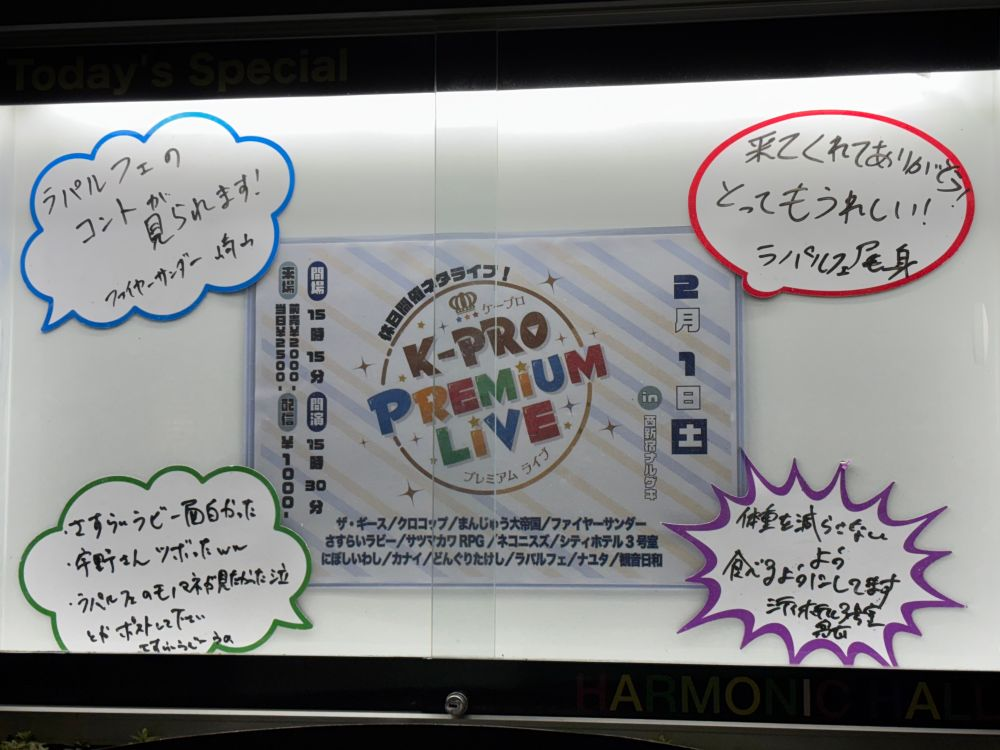 Today's Special
ラパルフェの
コントが
見られます!
ファイヤーサンダー 﨑山
来てくれてありがとう!
とってもうれしい!
ラパルフェ 尾身
休日開催ネタライブ!
ケープロ
K-PRO
PREMIUM
LIVE
プレミアム ライブ
2月1日土
in 西新宿ナルゲキ
開場 15時15分 開演 15時30分
来場 前売¥2000- 当日¥2500- 配信 ¥1000-
ザ・ギース/クロコップ/まんじゅう大帝国/ファイヤーサンダー
さすらいラビー/サツマカワRPG/ネコニスズ/シティホテル3号室
にぼしいわし/カナイ/どんぐりたけし/ラパルフェ/ナユタ/観音日和
・さすらいラビー面白かった
・宇野さんツボったww
・ラパルフェのモノマネ見たかった泣
とかポストして下さい
さすらいラビー 宇野
体重を減らさない
よう
食べるようにしてます
シティホテル3号室
HARMONIC HALL